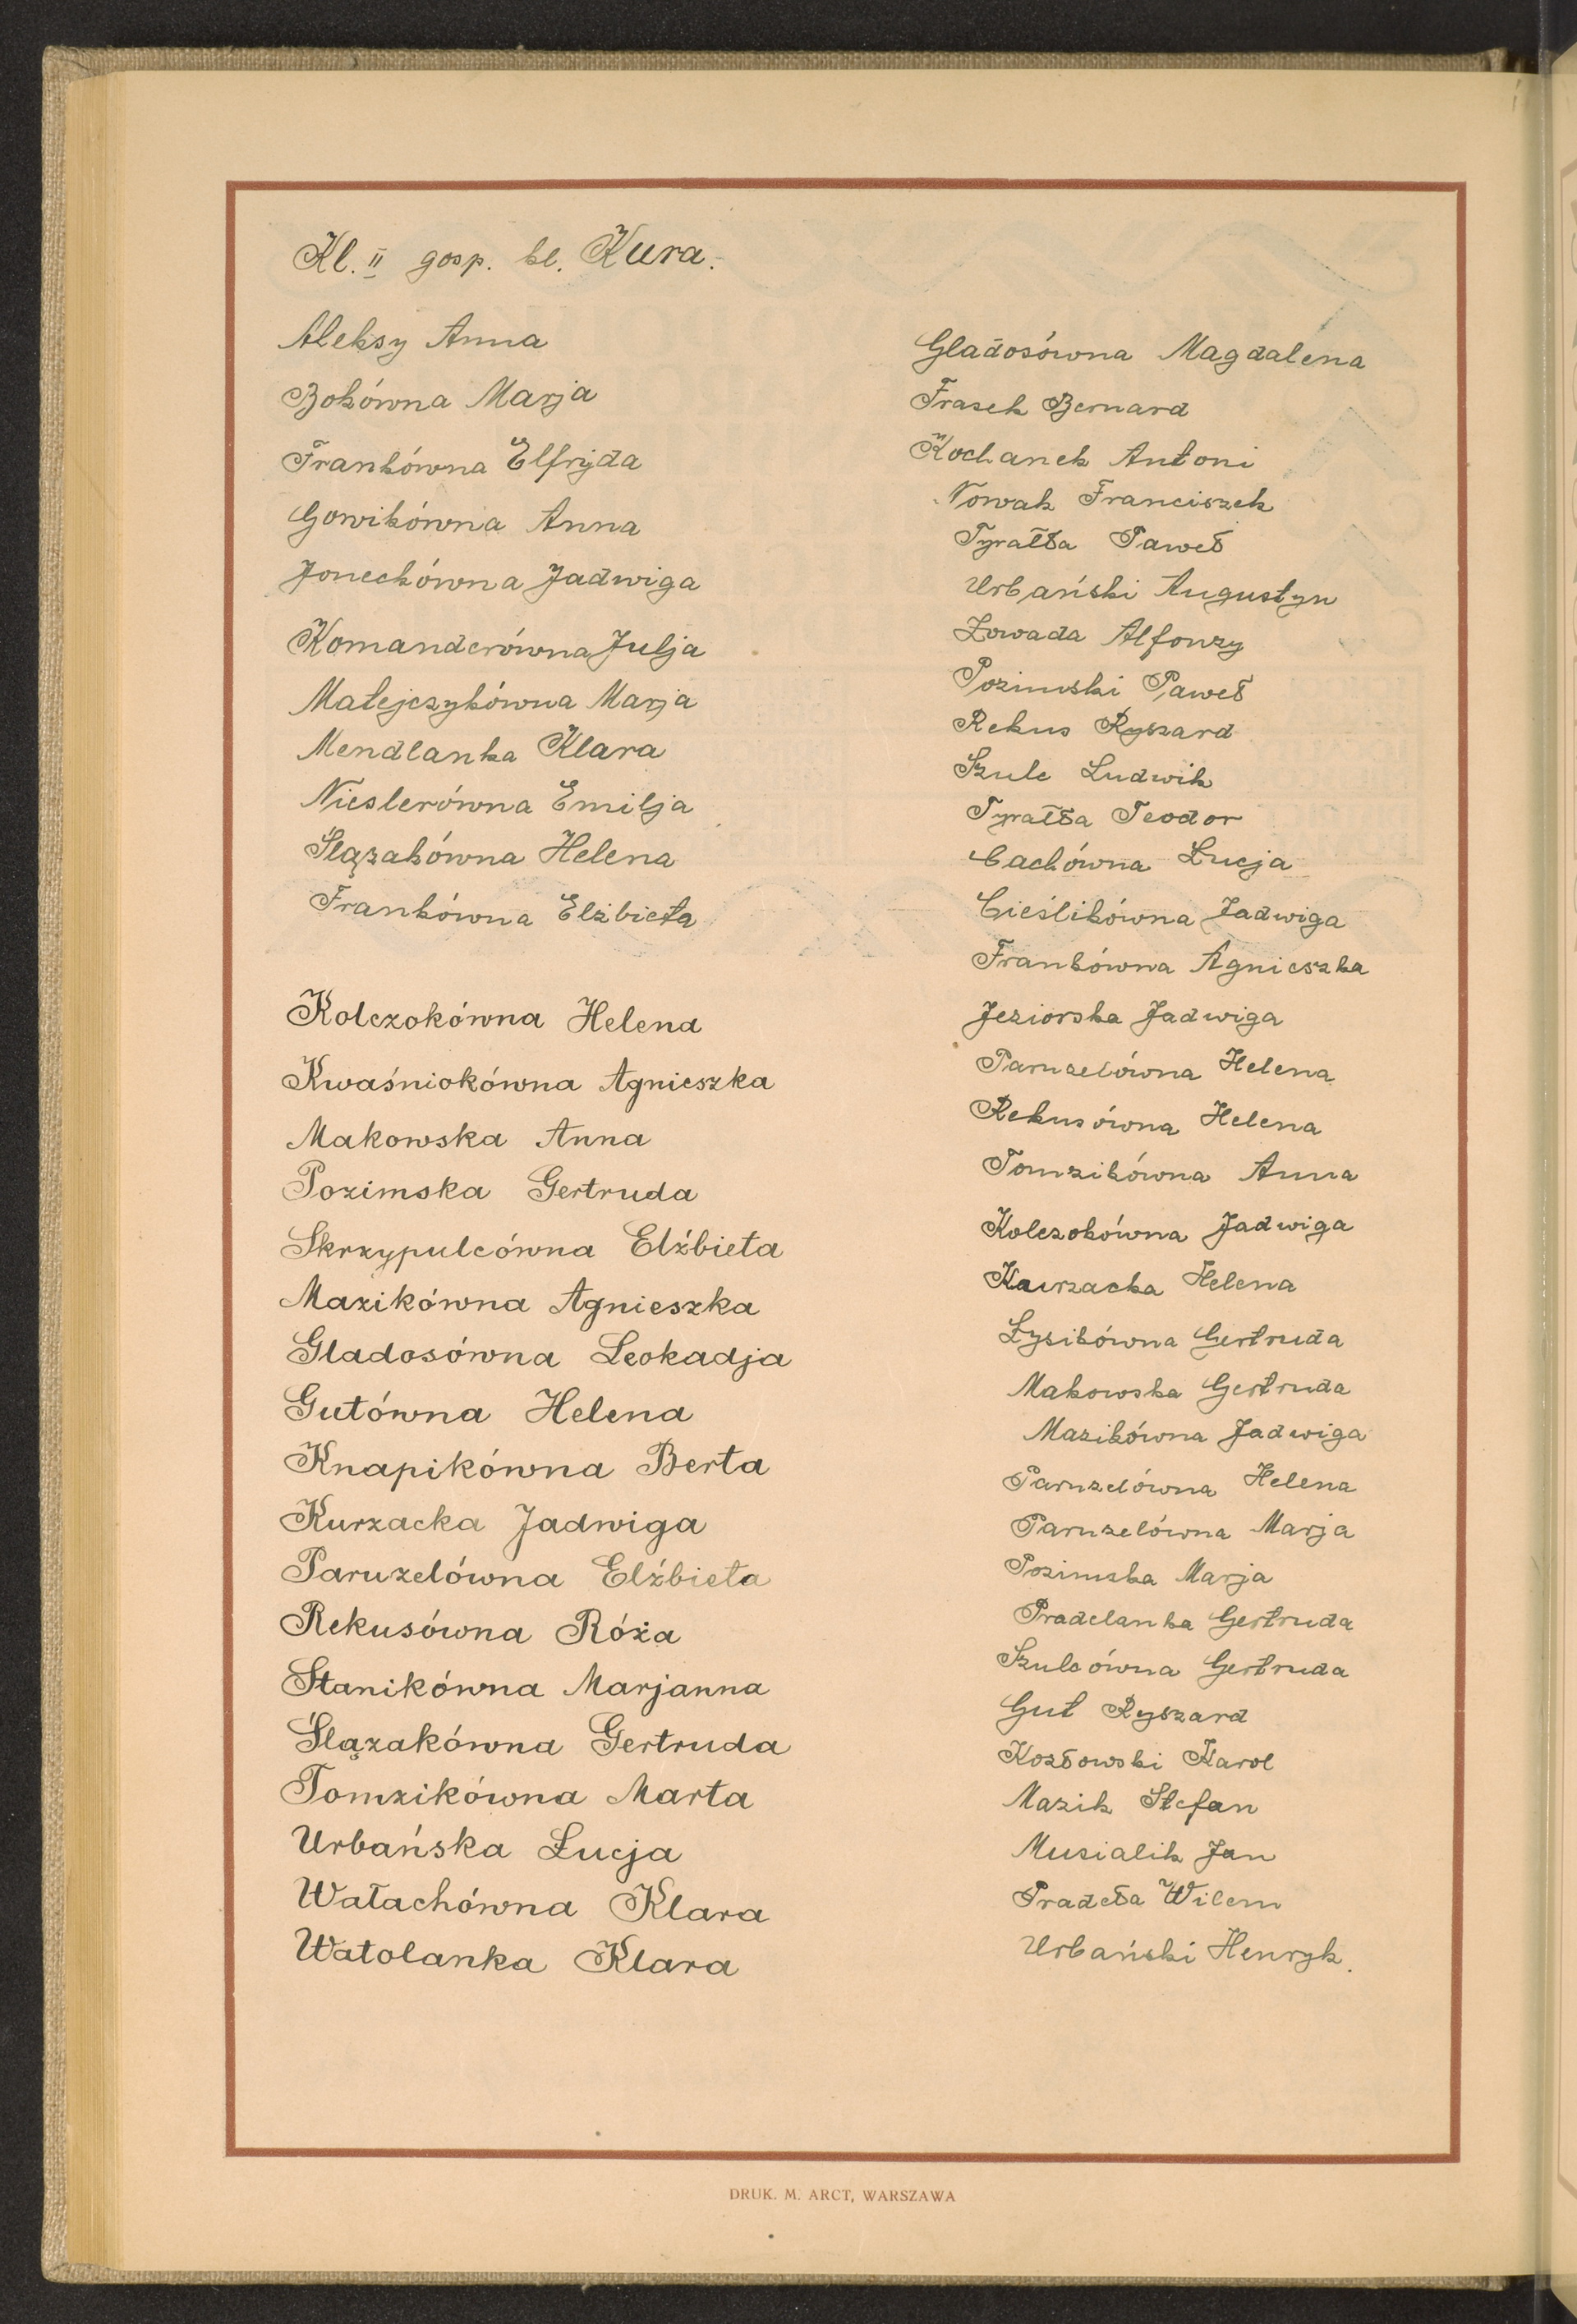 Kl. II gosp. kl. Kura.
Aleksy Anna
Bokówna Marja
Frankówna Elfryda
Gowikówna Anna
Joneckówna Jadwiga
Komanderówna Julja
Matejczykówna Marja
Mendlanka Klara
Nieslerówna Emilja
Ślązakówna Helena
Frankówna Elżbieta
Kolczokówna Helena
Kwaśniokówna Agnieszka
Makowska Anna
Pozimska Gertruda
Skrzypulcówna Elżbieta
Mazikówna Agnieszka
Gladosówna Leokadja
Gutówna Helena
Knapikówna Berta
Kurzacka Jadwiga
Paruzelówna Elżbieta
Rekusówna Róża
Stanikówna Marjanna
Ślązakówna Gertruda
Tomzikówna Marta
Urbańska Łucja
Wałachówna Klara
Watolanka Klara
Gladosówna Magdalena
Frasek Bernard
Kochanek Antoni
Nowak Franciszek
Tyrałła Paweł
Urbański Augustyn
Zowada Alfonzy
Pozimski Paweł
Rekus Ryszard
Szulc Ludwik
Tyrałła Teodor
Cachówna Łucja
Cieślikówna Jadwiga
Frankówna Agnieszka
Jeziorska Jadwiga
Paruzelówna Helena
Rekusówna Helena
Tomzikówna Anna
Kolczokówna Jadwiga
Kurzacka Helena
Łysikówna Gertruda
Makowska Gertruda
Mazikówna Jadwiga
Paruzelówna Helena
Paruzelówna Marja
Pozimska Marja
Pradelanka Gertruda
Szulcówna Gertruda
Gut Ryszard
Kozłowski Karol
Mazik Stefan
Musialik Jan
Pradeła Wilem
Urbański Henryk.
DRUK. M. ARCT, WARSZAWA